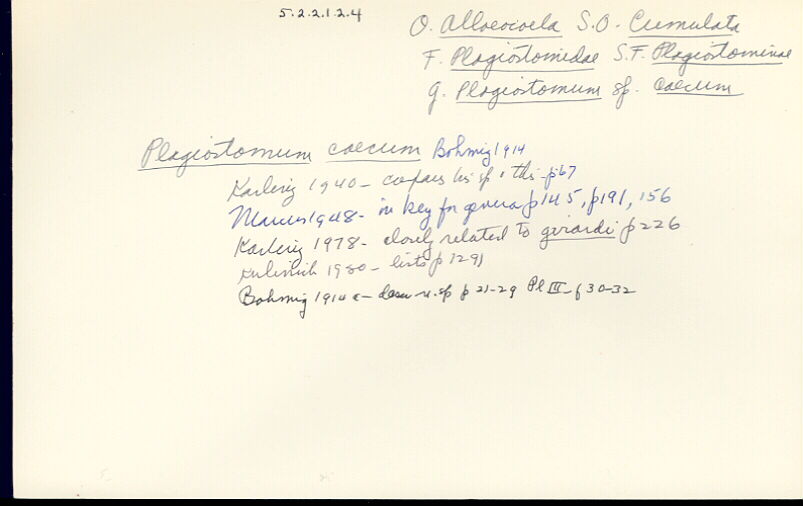 5.2.2.1.2.4
O. Alloeocoela S.O. Cumulata
F. Plagiostomidae S.F. Plagiostominae
g. Plagiostomum sp. caecum
Plagiostomum caecum Bohmig 1914
Karling 1940 - compares his sp & this - p67
Marcus 1948 - in key for genera p145, p191, 156
Karling 1978 - closely related to girardi p226
Kulinich 1980 - lists p 129
Bohmig 1914 a - descr n. sp p 21-29 Pl III - f 30-32